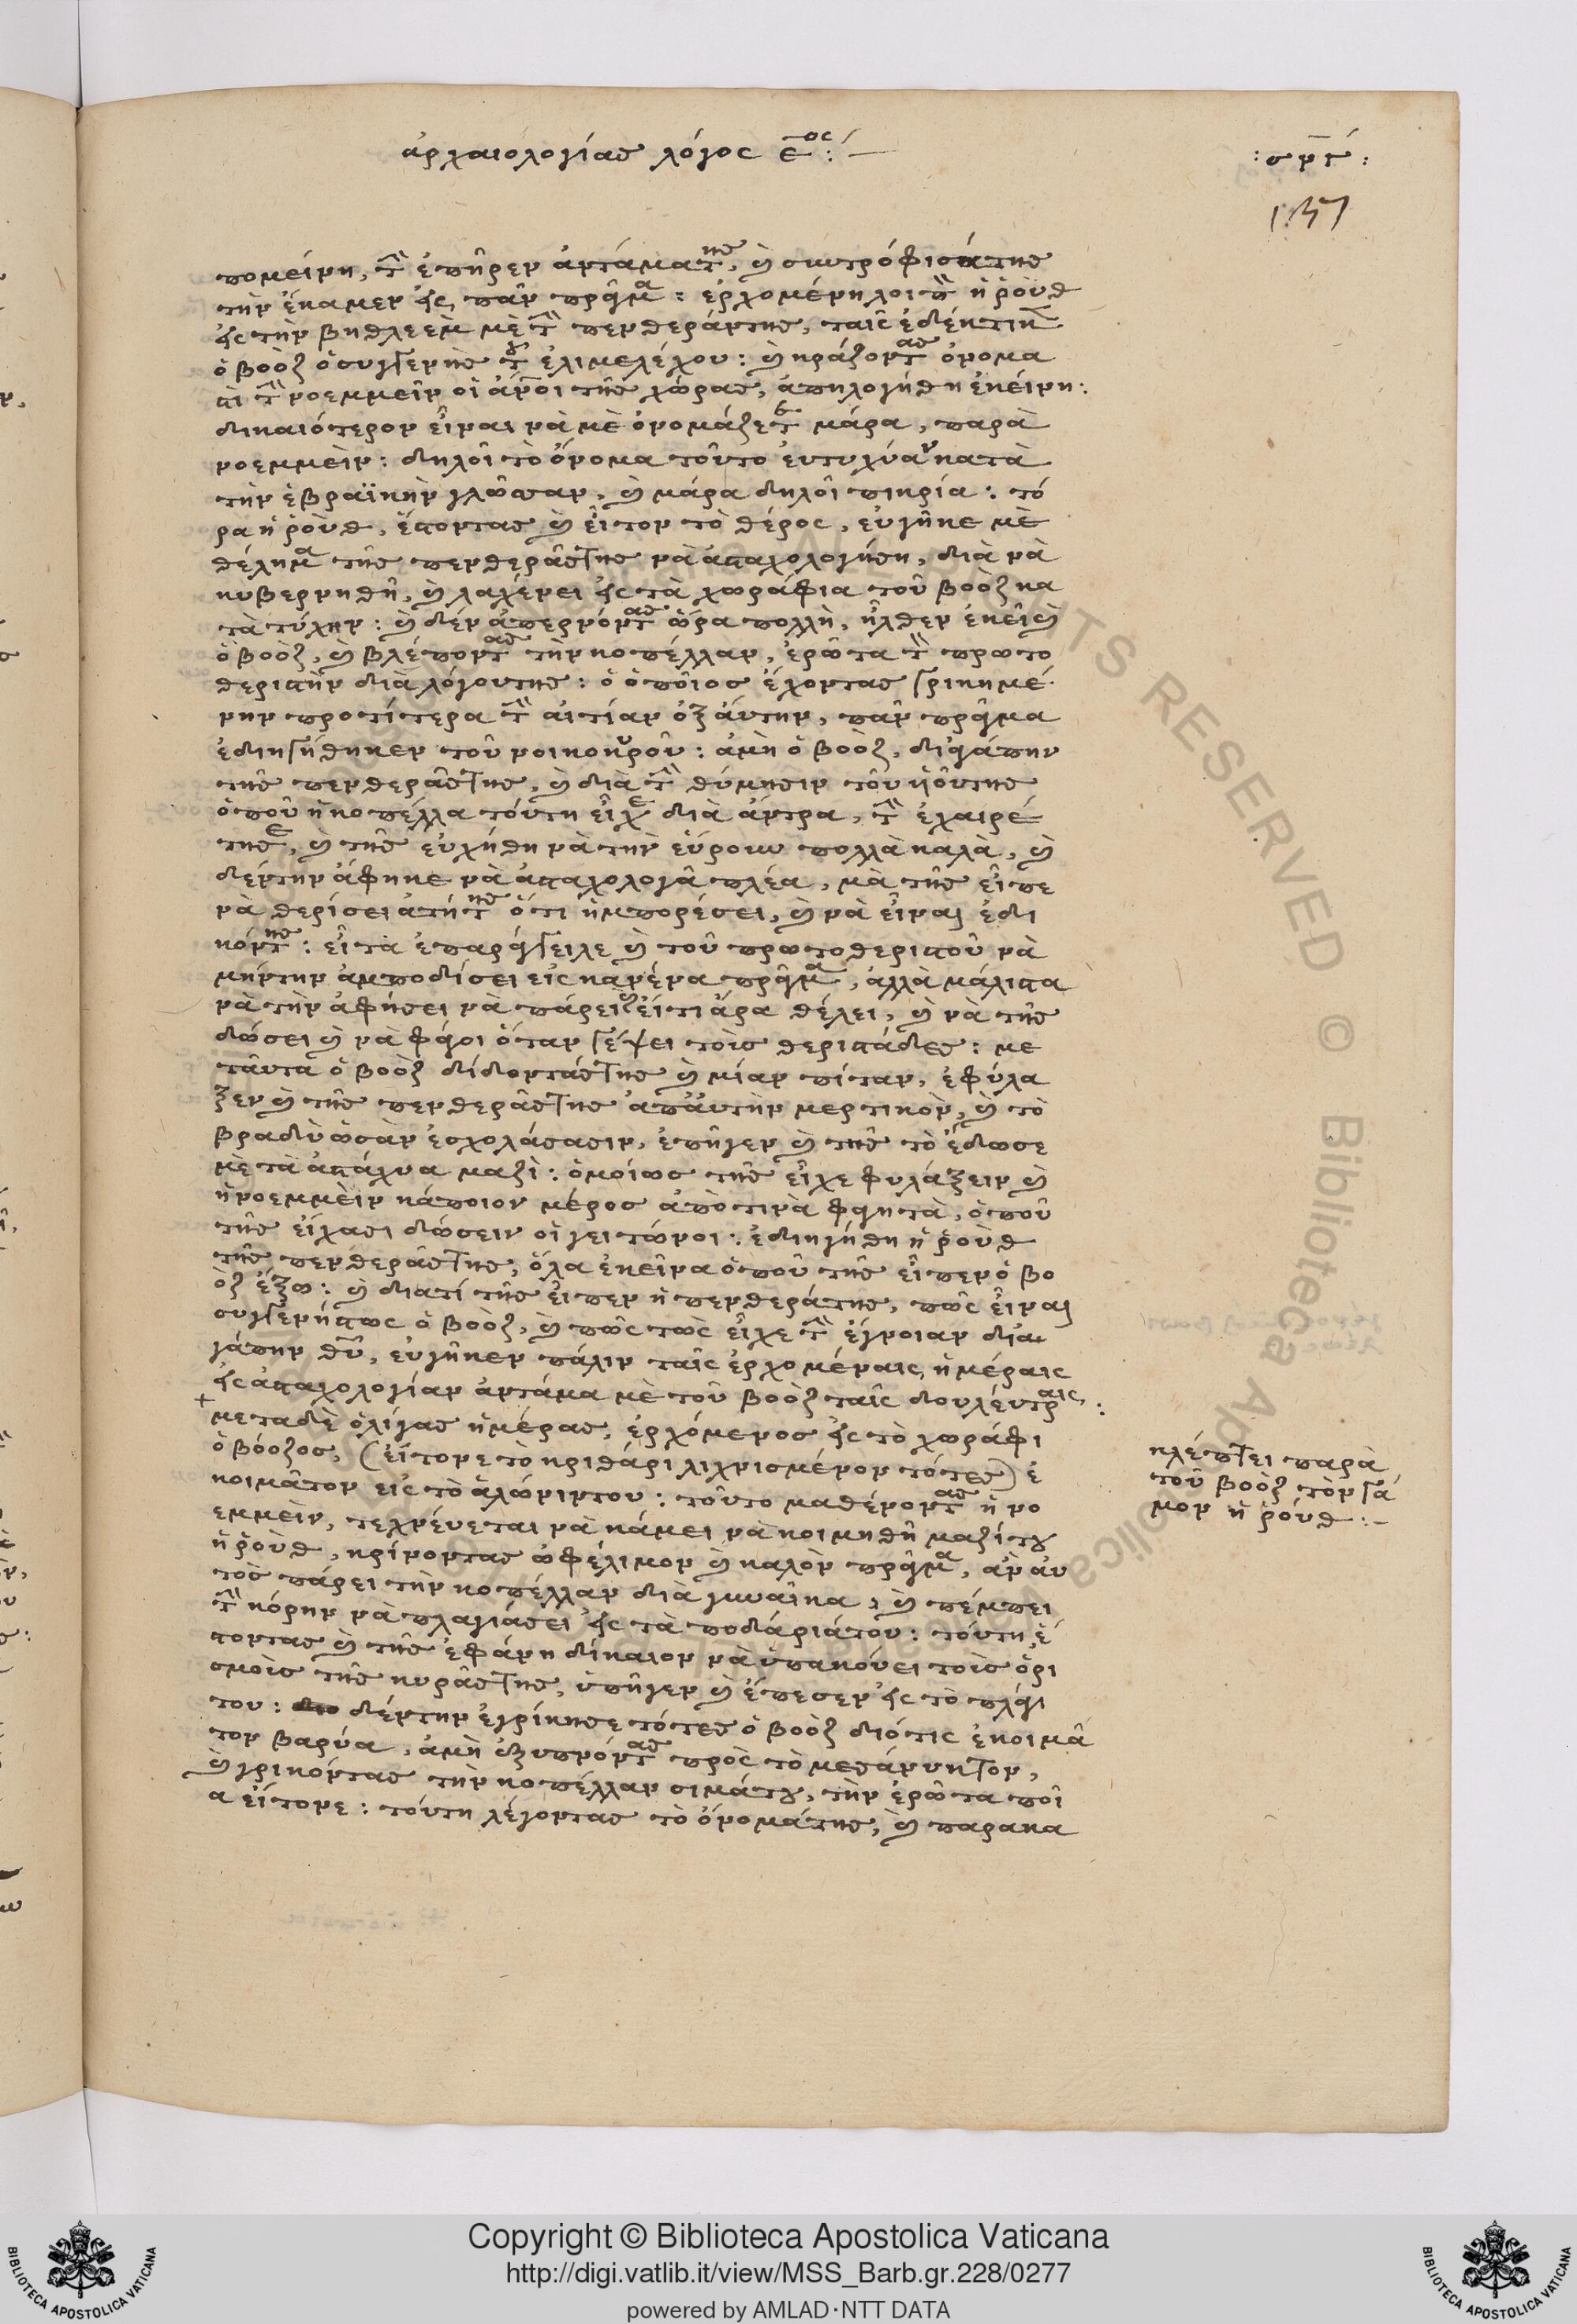 ἀρχαιολογίας λόγος ε^ος :—
:σν̅γ:
137
πομείνη, τὴν ἐπῆρεν ἀντάματης, καὶ συντρόφισάτης
τὴν ἔκαμεν εἰς πᾶν πρᾶγμα: ἐρχομένη λοιπὸν ἡ ῥοὺθ
εἰς τὴν βηθλεὲμ μὲ τὴν πενθεράντης, ταῖς ἐδέκτικεν
ὁ βοὸζ ὁ συγγενὴς τοῦ ἐλιμελέχου: καὶ κράζοντας ὄνομα
τὴν νοεμμεῖν οἱ ἄν̅οι τῆς χώρας, ἀπηλογήθη ἐκείνη:
δικαιότερον εἶναι νὰ μὲ ὀνομάζετε μάρα, παρὰ
νοεμμεὶν: δηλοῖ τὸ ὄνομα τοῦτο εὐτυχίαν κατὰ
τὴν ἑβραϊκὴν γλῶσσαν, καὶ μάρα δηλοῖ πικρία: τό
ρα ἡ ῥοὺθ, ἔστοντας καὶ εἶτον τὸ θέρος, εὐγῆκε μὲ
θέλημα τῆς πενθερᾶςτης νὰ ἀσταχολογήση, διὰ νὰ
κυβερνηθῆ, καὶ λαχένει εἰς τὰ χωράφια τοῦ βοὸζ κα
τὰ τύχην: καὶ δὲν ἀπερνόντας ὥρα πολλὴ, ἦλθεν ἐκεῖ καὶ
ὁ βοὸζ, καὶ βλέποντας τὴν κοπέλλαν, ἐρῶτα τὸν πρωτο
θεριστὴν διὰ λόγουτης: ὁ ὁποῖος ἔχοντας γρικημέ
νην προτίτερα τὴν αἰτίαν ὀξάυτην, πᾶν πρᾶγμα
ἐδιηγήθηκεν τοῦ νοικοκυροῦ: ἀμὴ ὁ βοὸζ, δι' ἀγάπην
τῆς πενθερᾶςτης, καὶ διὰ τὴν θύμησιν τοῦ υἱοῦτης
ὁποῦ ἡ κοπέλλα τούτη εἶχε διὰ ἄντρα, τὴν ἐχαιρέ
τησε, καὶ τῆς εὐχήθη νὰ τὴν εὕρουν πολλὰ καλὰ, καὶ
δέντην ἄφηκε νὰ ἀσταχολογᾶ πλέα, μὰ τῆς εἶπε
νὰ θερίσει ἀτήτης ὅτι ἠμπορέσει, καὶ νὰ εἶναι ἐδι
κόντης: εἶτα ἐπαράγγειλε καὶ τοῦ πρωτοθεριστοῦ νὰ
μήντην ἀμποδίσει εἰς κανένα πρᾶγμα, ἀλλὰ μάλιστα
νὰ τὴν ἀφήσει νὰ πάρει εἴτι ἄρα θέλει, καὶ νὰ τῆς
δώσει καὶ νὰ φάγοι ὅταν γεύγει τοὶς θεριστάδες: με
ταῦτα ὁ βοὸζ δίδοντάςτης καὶ μίαν πίταν, ἐφύλα
ξεν καὶ τῆς πενθερᾶςτης ἀπἀυτὴν μερτικὸν, καὶ τὸ
βραδὺ ὡσὰν ἐσχολάσασιν, ἐπῆγεν καὶ τῆς τὸ ἔδωσε
μὲ τὰ ἀστάχυα μαζὶ: ὁμοίως τῆς εἶχε φυλάξειν καὶ
ἡ νοεμμεὶν κάποιον μέρος ἀπὸ τινὰ φαγητὰ, ὁποῦ
τῆς εἴχασι δώσειν οἱ γειτώνοι: ἐδιηγήθη ἡ ῥοὺθ
τῆς πενθερᾶςτης, ὅλα ἐκεῖνα ὁποῦ τῆς εἶπεν ὁ βο
ὸζ ἔξω: καὶ διατί τῆς εἶπεν ἡ πενθεράτης, πῶς εἶναι
συγγενήςτως ὁ βοὸζ, καὶ πῶς τὼς εἶχε τὴν ἔγνοιαν δι' ἀ
γάπην θῦ, εὐγῆκεν πάλιν ταῖς ἐρχομέναις ἡμέραις
εἰς ἀσταχολογίαν ἀντάμα μὲ τοῦ βοὸζ ταῖς δουλέυτραις:
+ μεταδὲ ὀλίγας ἡμέρας, ἐρχόμενος εἰς τὸ χωράφι
ὁ βόοζος, (εἴτονε τὸ κριθάρι λιχνισμένον τότες) ἐ
κοιμᾶτον εἰς τὸ ἁλώνιντου: τοῦτο μαθένοντας ἡ νο
εμμεὶν, τεχνέυεται νὰ κάμει νὰ κοιμηθῆ μαζίτου
ἡ ῥοὺθ, κρίνοντας ὠφέλιμον καὶ καλὸν πρᾶγμα, ἀν ἀυ
τὸς πάρει τὴν κοπέλλαν διὰ γυναῖκα, καὶ πέμπει
τὴν κόρην νὰ πλαγιάσει εἰς τὰ ποδάριάτου: τούτη ἔ
στοντας καὶ τῆς ἐφάνη δίκαιον νὰ ὑπακούει τοὶς ὁρι
σμοὶς τῆς κυρᾶςτης, ὑπῆγεν καὶ ἔπεσεν εἰς τὸ πλάγι
του: δέντην ἐγρίκησε τότες ὁ βοὸζ διότις ἐκοιμᾶ
τον βαρύα, ἀμὴ ἐξυπνόντας πρὸς τὸ μεσάνυκτον,
καὶ γρικόντας τὴν κοπέλλαν σιμάτου, τὴν ἐρῶτα ποῖ
α εἴτονε: τούτη λέγοντας τὸ ὄνομάτης, καὶ παρακα
κλέπτει παρὰ
τοῦ βοὸζ τὸν γά
μον ἡ ῥούθ:—
Copyright © Biblioteca Apostolica Vaticana
http://digi.vatlib.it/view/MSS_Barb.gr.228/0277
powered by AMLAD·NTT DATA
BIBLIOTECA APOSTOLICA VATICANA
BIBLIOTECA APOSTOLICA VATICANA